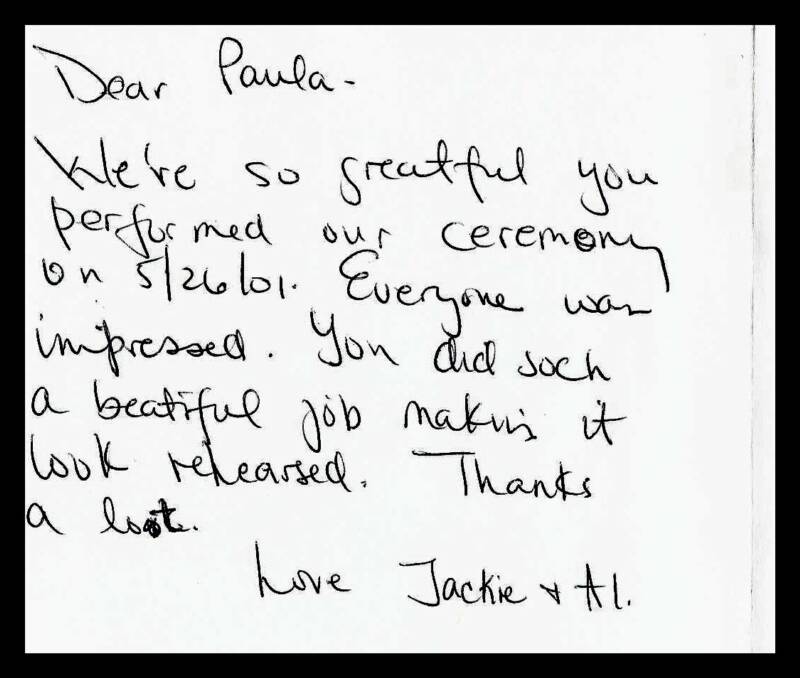 Dear Paula-
We're so greatful you
performed our ceremony
on 5/26/01. Everyone was
impressed. You did soch
a beatiful job making it
look rehearsed. Thanks
a lot.
Love Jackie + Al.